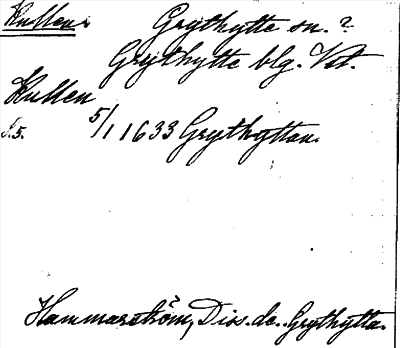 Kullen. Grythytte sn.?
Grythytte blg. Vstm.
Kullen
S. 5. 5/1 1633 Grythyttan.
Hammarström, Diss. de. Grythytta.